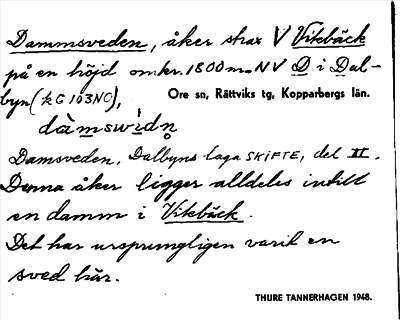 Dammsveden, åker strax V Vikbäck
på en höjd omkr. 1800 m NV D i Dal-
byn (kG 103NO),
Ore sn, Rättviks tg, Kopparbergs län.
dàmswìdn̥
Damsveden, Dalbyns laga SKIFTE, del II.
Denna åker ligger alldeles intill
en damm i Vikbäck.
Det har ursprungligen varit en
sved här.
THURE TANNERHAGEN 1948.